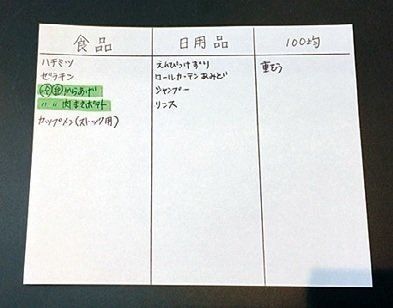 食品
ハチミツ
ゼラチン
からあげ
〃 〃 肉まき
カップメン(ストック用)
日用品
えんぴつけずり
ロールカーテン あみど
シャンプー
リンス
100均
重そう